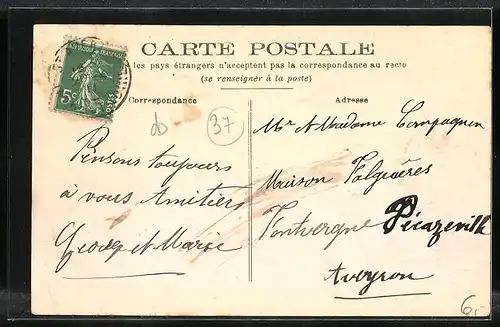 CARTE POSTALE
les pays étrangers n'acceptent pas la correspondance au recto
(se renseigner à la poste)
Correspondance
Adresse
5c
37
Pensons toujours
à vous Amitiés
et Marie
Mr & Madame Compagnon
Maison Falguières
Fontvergne Decazeville
Aveyron
6,-